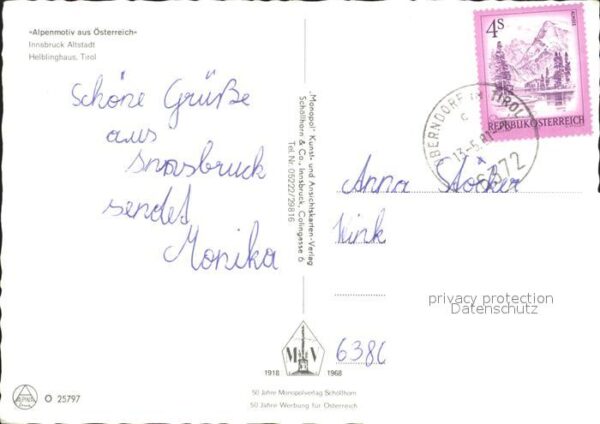 »Alpenmotiv aus Österreich«
Innsbruck Altstadt
Helblinghaus, Tirol
Schöne Grüße
aus
Innsbruck
sendet
Monika
"Monopol" Kunst- und Ansichtskarten-Verlag
Schöllhorn & Co., Innsbruck, Colingasse 6
Tel. Nr. 05222/29816
4S
REPUBLIK ÖSTERREICH
OBERNDORF IN TIROL
6372
Anna Stocker
privacy protection
Datenschutz
M V
1918
1968
50 Jahre Monopolverlag Schöllhorn
50 Jahre Werbung für Österreich
O 25797